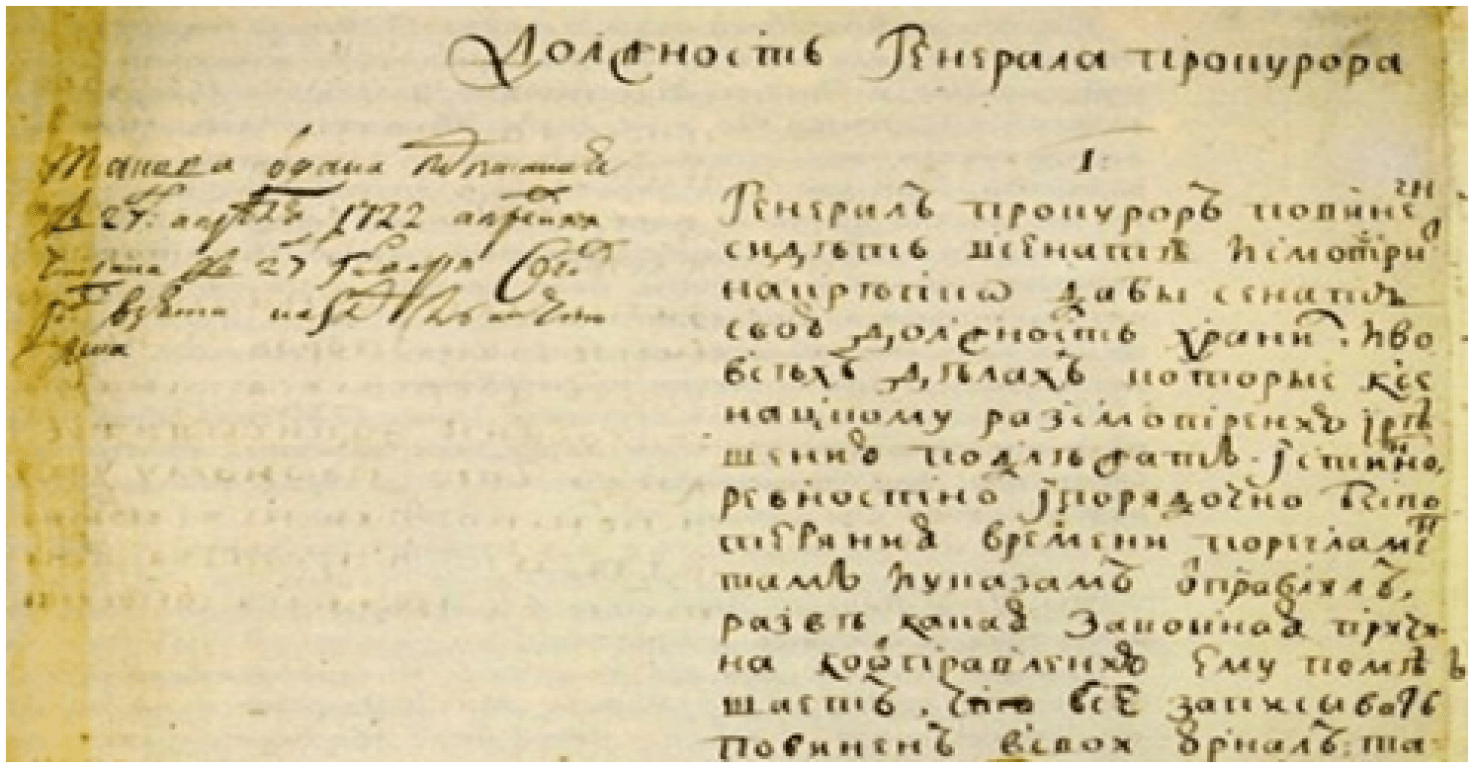 Должность Генерала прокурора
Такова отдана
27 1722
27
взята
1
Генералъ прокуроръ повине
гн
сидѣть всенатѣ ісмотри
накрѣпко дабы сенатъ
свою должность храни . іво
всѣхъ дѣлахъ которые ксе
нацкому разсмотренію ірѣ
шению подлѣжатъ . істинно,
ревностно іпорядочно безпо
теряния времени порегламе
тамъ іуказамъ отправлялъ,
развѣ какая законная причи
на коотправлению ему помѣ
шаетъ . что все записывать
повиненъ всвох юрналъ: та